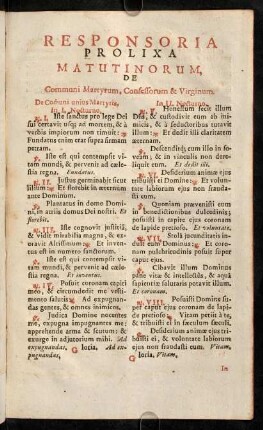 RESPONSORIA
PROLIXA
MATUTINORUM,
DE
Communi Martyrum, Confessorum & Virginum.
De Cōmuni unius Martyris,
In I. Nocturno.
℟. I. Iste sanctus pro lege Dei
sui certavit usq; ad mortem, & à
verbis impiorum non timuit:
Fundatus enim erat supra firmam
petram.
Iste est qui contempsit vi-
tam mundi, & pervenit ad cæle-
stia regna. Fundatus.
℟. II. Justus germinabit sicut
lilium: Et florebit in æternum
ante Dominum.
Plantatus in domo Domi-
ni, in atriis domus Dei nostri. Et
florebit.
℟. III. Iste cognovit justitiā,
& vidit mirabilia magna, & ex-
oravit Altissimum: Et inven-
tus est in numero sanctorum.
Iste est qui contempsit vi-
tam mundi, & pervenit ad cæle-
stia regna. Et inventus.
℟. IV. Posuit coronam capiti
meo, & circumdedit me vesti-
mento salutis: Ad expugnan-
das gentes, & omnes inimicos.
Judica Domine nocentes
me, expugna impugnantes me:
apprehende arma & scutum: &
exurge in adjutorium mihi. Ad
expugnandas, Gloria, Ad ex-
pugnandas,
In II. Nocturno.
℟. V. Honestum fecit illum
Deus, & custodivit eum ab ini-
micis, & à seductoribus tutavit
illum: Et dedit illi claritatem
æternam.
Descenditq; cum illo in fo-
veam, & in vinculis non dere-
liquit eum. Et dedit illi.
℟. VI. Desiderium animæ ejus
tribuisti ei Domine: Et volun-
tate labiorum ejus non fraudasti
eum.
Quoniam prævenisti eum
in benedictionibus dulcedinis;
posuisti in capite ejus coronam
de lapide pretioso. Et voluntate,
℟. VII. Stola jucunditatis in-
duit eum Dominus: Et coro-
nam pulchritudinis posuit super
caput ejus.
Cibavit illum Dominus
pane vitæ & intellectûs, & aquâ
sapientiæ salutaris potavit illum.
Et coronam.
℟. VIII. Posuisti Domine su-
per caput ejus coronam de lapi-
de pretioso: Vitam petiit à te,
& tribuisti ei in sæculum sæculi.
Desiderium animæ ejus tri-
buisti ei, & voluntate labiorum
ejus non fraudasti eum. Vitam,
Gloria, Vitam,
In